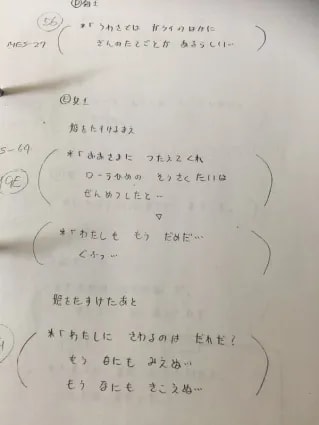 56
MES-27
*「うわさでは ガライのはかに
ぎんのたてごとが あるらしい…
姫をたすけるまえ
*「おおさまに つたえてくれ
ローラひめの そうさくたいは
ぜんめつしたと…
▽
*「わたしも もう だめだ…
ぐふっ…
姫をたすけたあと
*「わたしに さわるのは だれだ?
もう なにも みえぬ…
もう なにも きこえぬ…